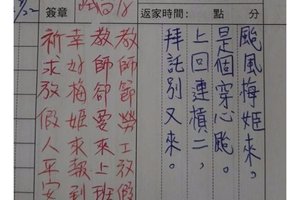 簽章
返家時間: 點 分
颱風梅姬來,
是個穿心颱。
上回連槓二,
拜託別又來。
教師節勞工放假
教師卻要上班
幸好梅姬來報到
祈求放假人平安